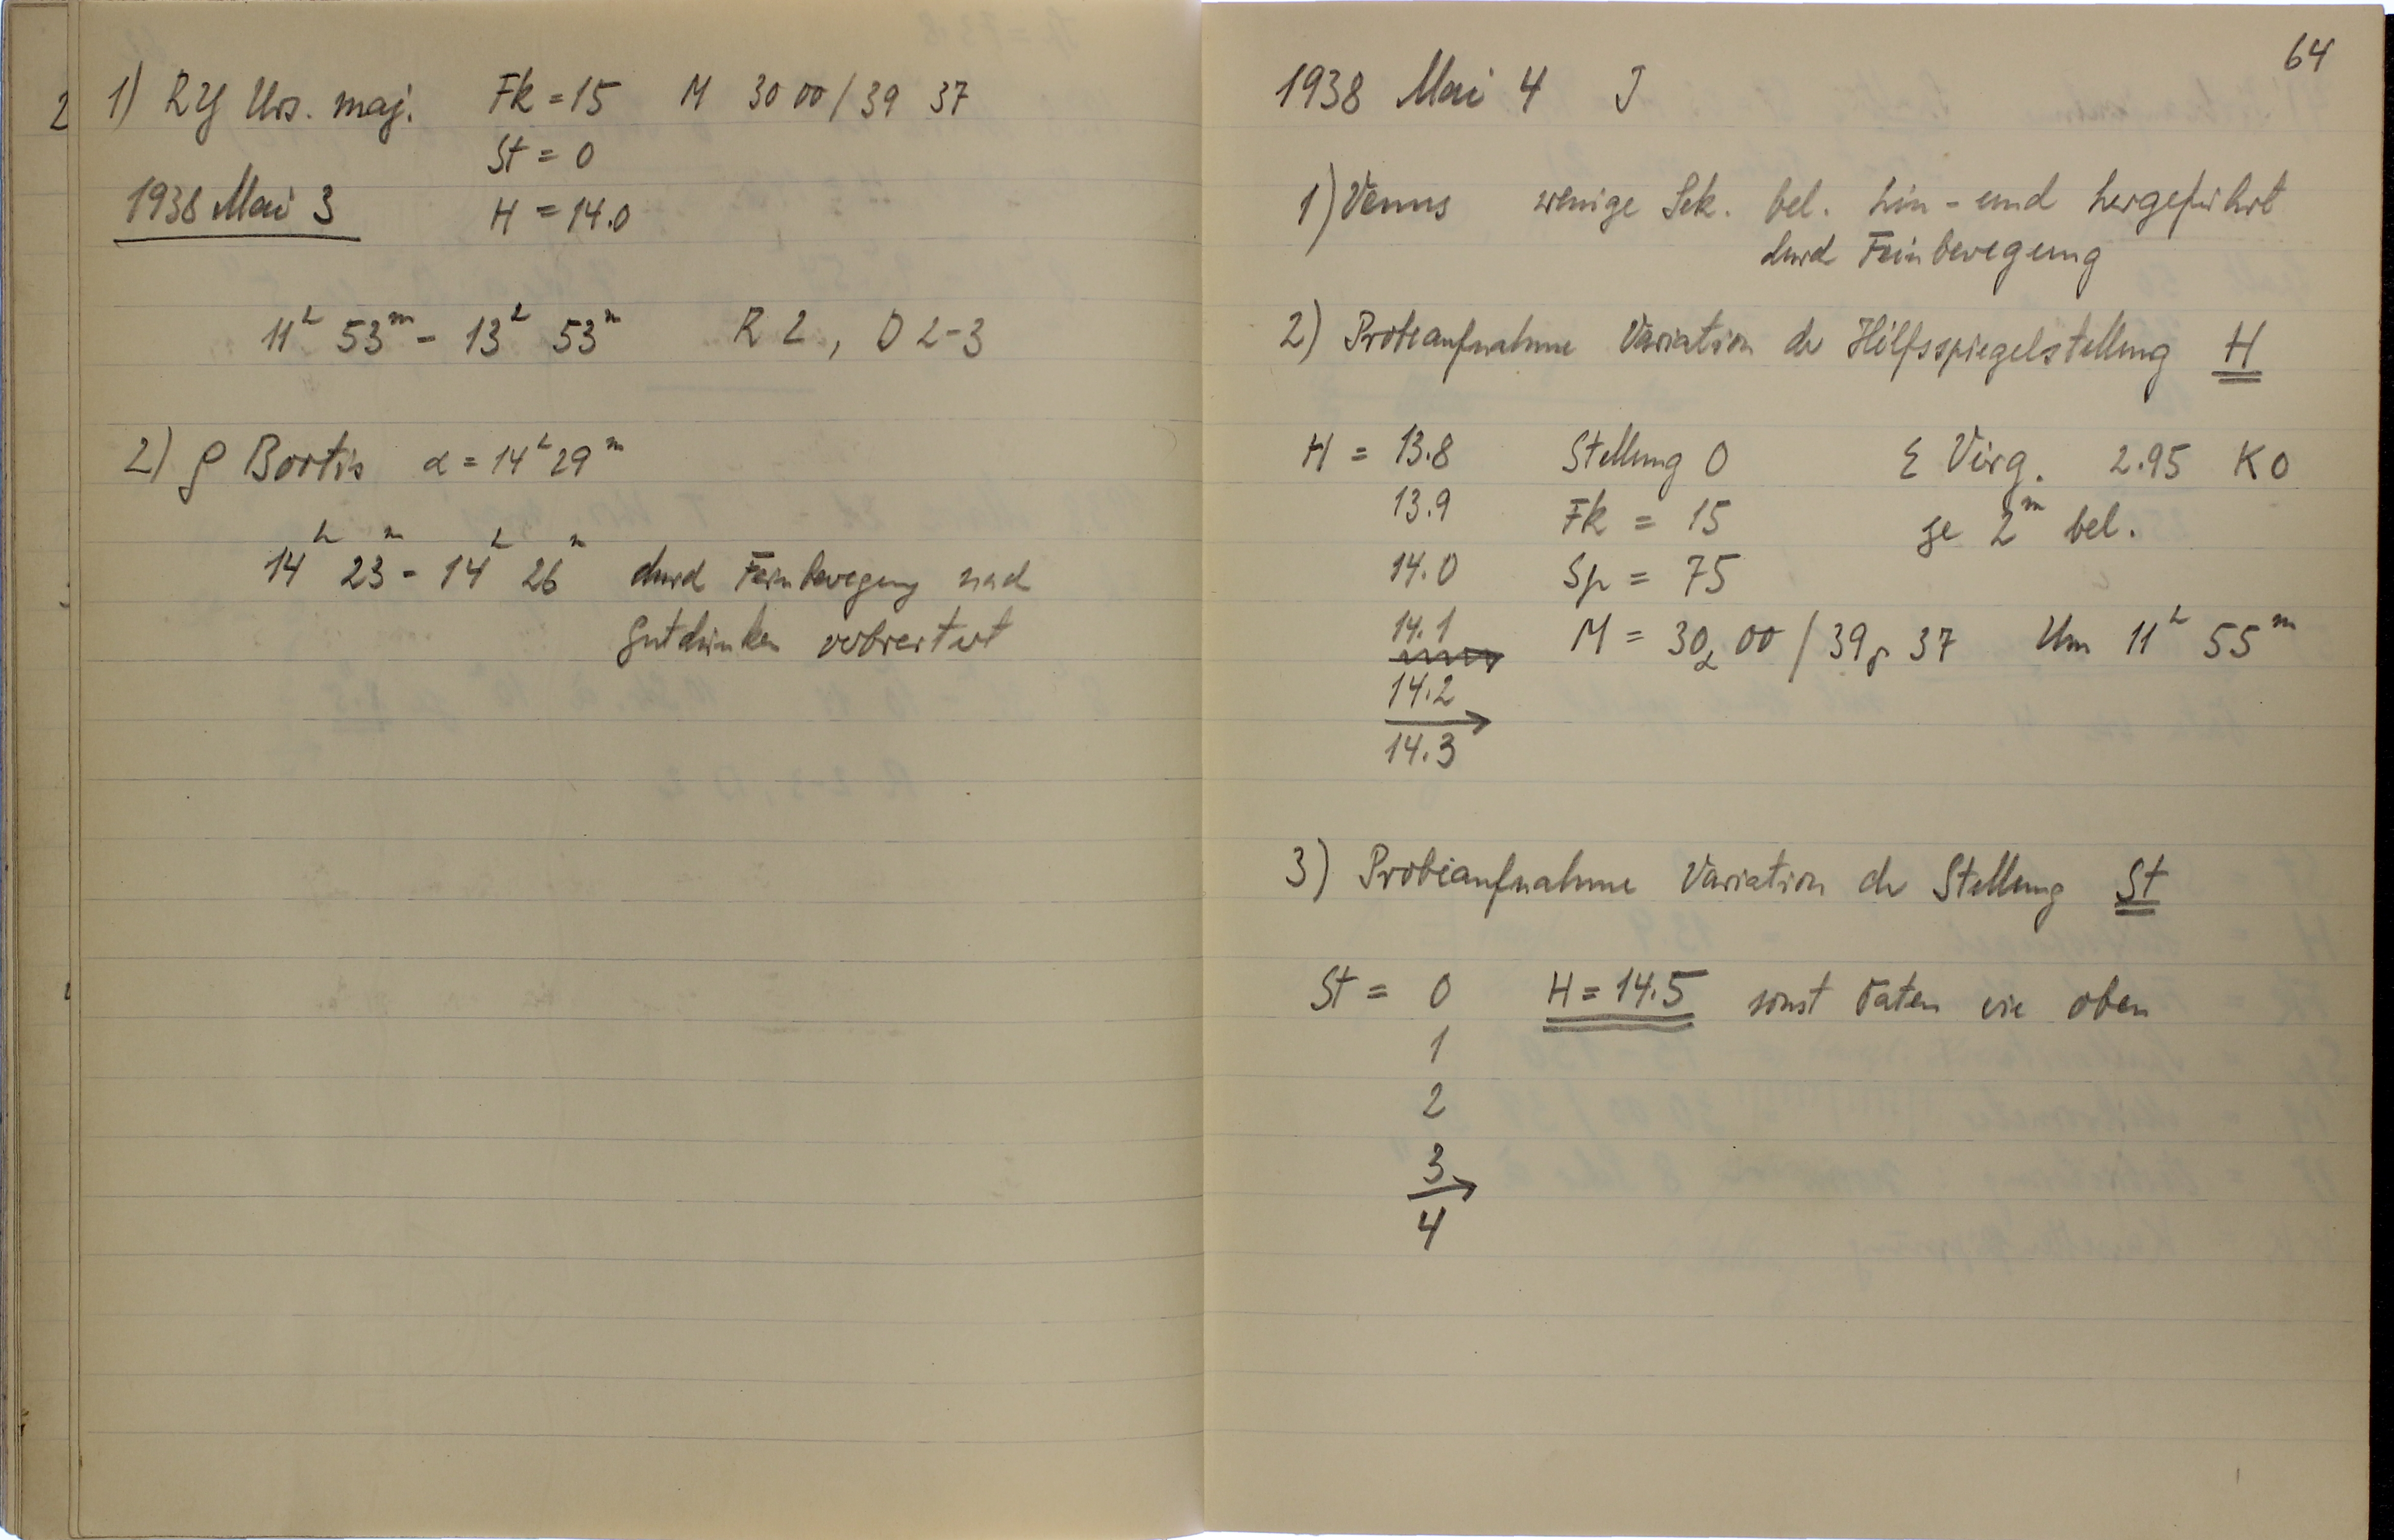 1) RY Urs. maj. Fk = 15 M 30 00 / 39 37
St = 0
1938 Mai 3
H = 14.0
11h 53m - 13h 53m R 2, D 2-3
2) ρ Bootis α = 14h 29m
14h 23m - 14h 26m durch Feinbewegung nach
Gutdünken verbreitert
64
1938 Mai 4 J
1) Venus wenige Sek. bel. hin- und hergeführt
durch Feinbewegung
2) Probeaufnahme Variation der Hilfsspiegelstellung H
H = 13.8 Stellung 0 ε Virg. 2.95 K0
13.9 Fk = 15 je 2m bel.
14.0 Sp = 75
14.1 M = 30, 00 / 39, 37 Um 11h 55m
14.2
14.3
3) Probeaufnahme Variation der Stellung St
St = 0 H = 14.5 sonst Daten wie oben
1
2
3
4